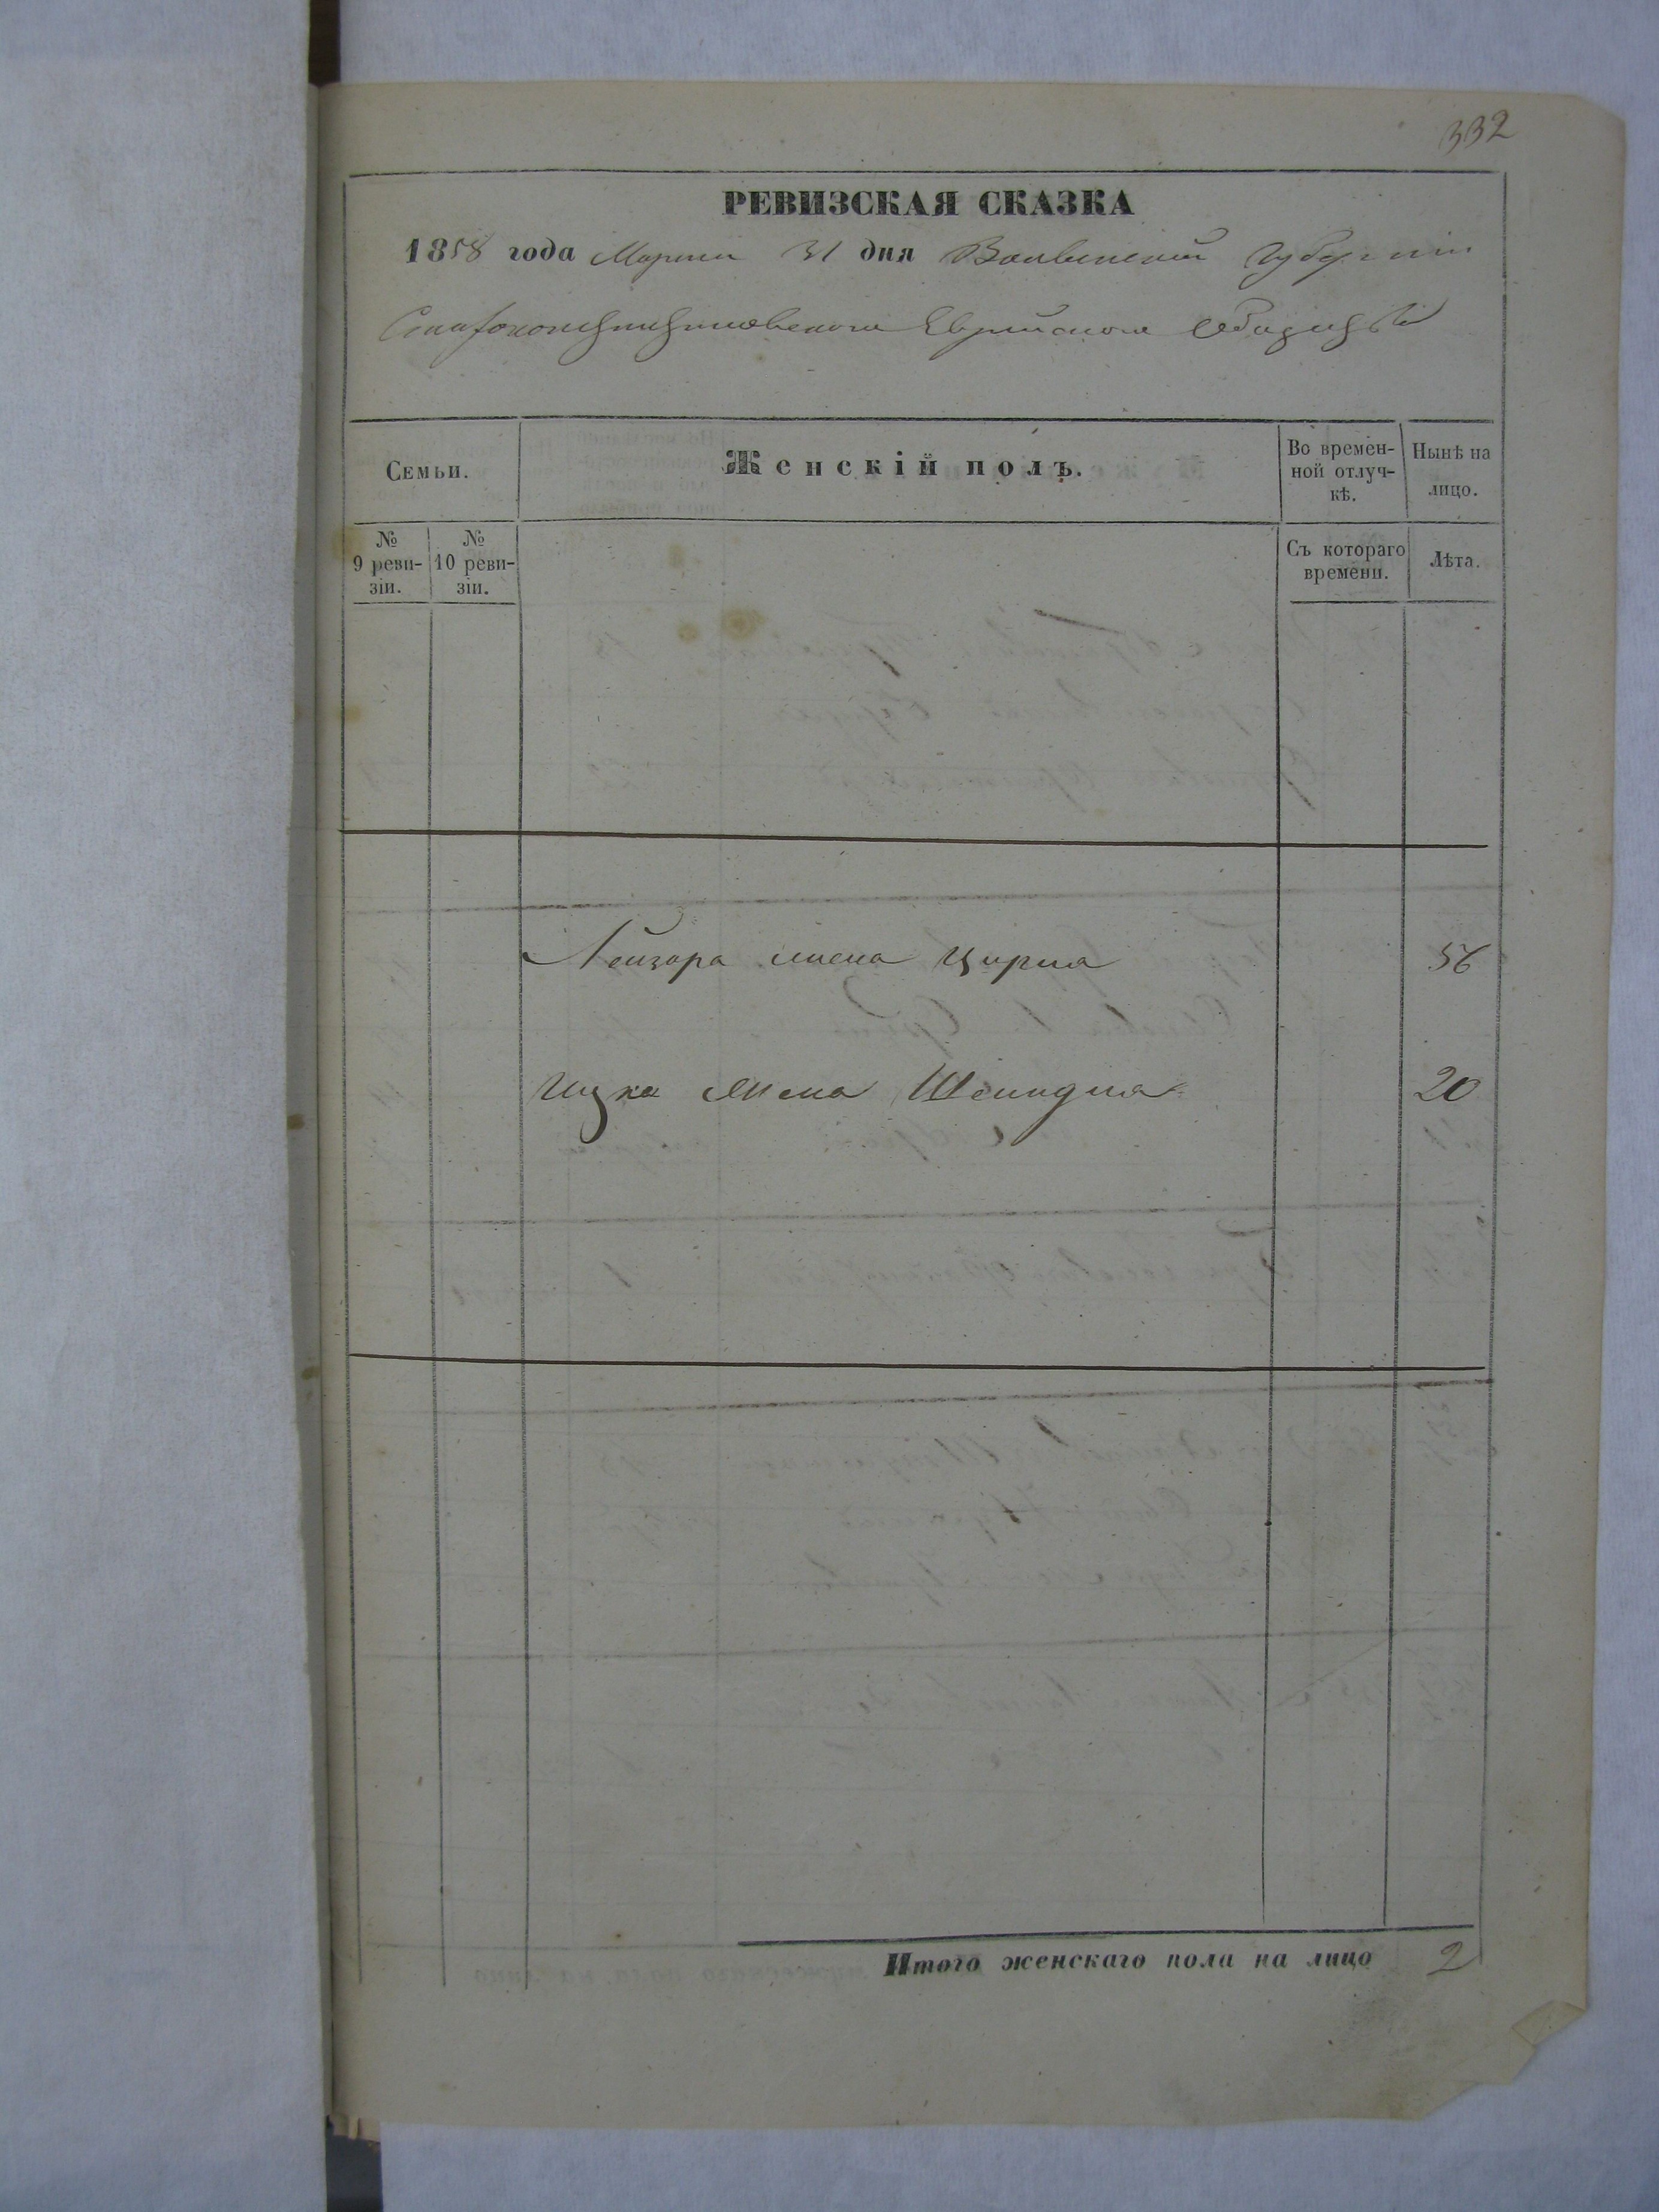 332
РЕВИЗСКАЯ СКАЗКА
1858 года Марта 31 дня Волынской Губернии
Староконстантиновского Еврейского Общества
Семьи.
Женскій полъ.
Во времен-
ной отлуч-
кѣ.
Нынѣ на
лицо.
№
9 реви-
зіи.
№
10 реви-
зіи.
Съ котораго
времени.
Лѣта.
Лейзора жена Цирля 56
Ицка жена Шейндля 20
Итого женскаго пола на лицо 2